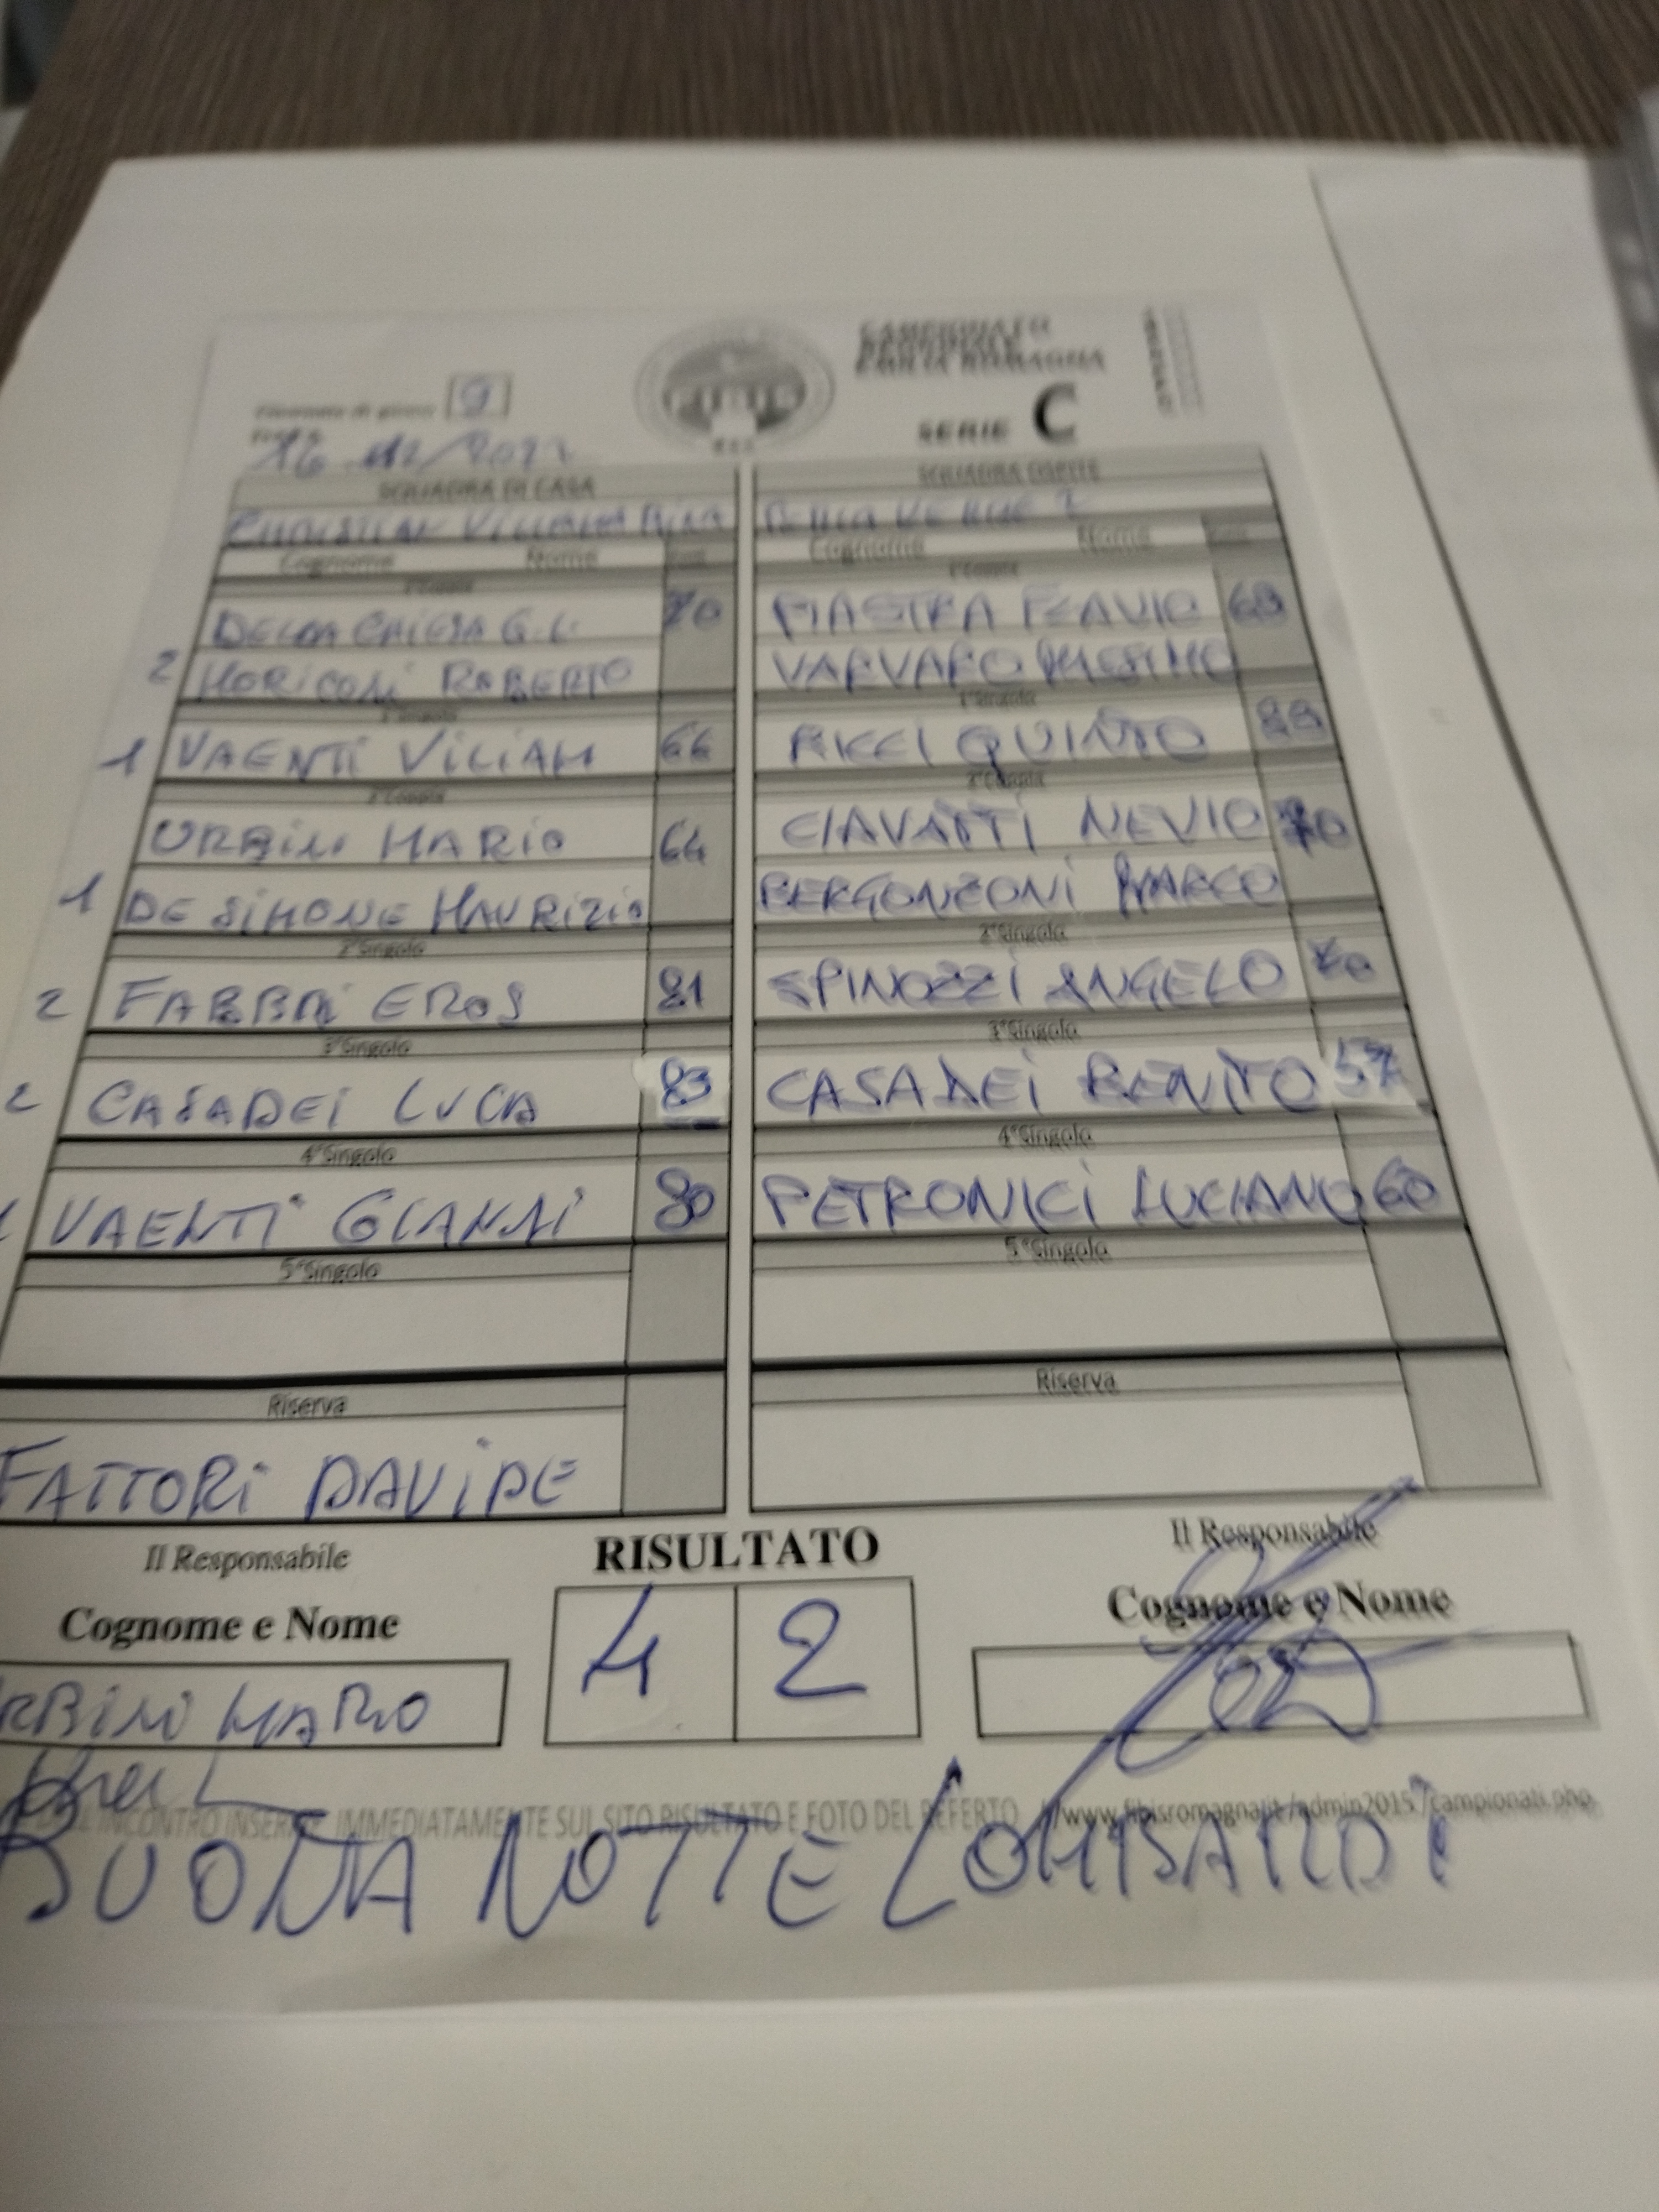 Giornata di gioco 9
CAMPIONATO
REGIONALE
EMILIA ROMAGNA
SERIE C
SQUADRA DI CASA
SQUADRA OSPITE
Cognome Nome
Cognome Nome
1°Coppia
1°Coppia
DELLA CHIESA G.L. 70
PIASTRA FLAVIO 68
2 MORICONI ROBERTO
VARVARO MASSIMO
1°Singolo
1°Singolo
1 VAENTI VILIAM 66
RICCI QUINTO
2°Coppia
2°Coppia
URBINI MARIO 64
CIAVATTI NEVIO 70
1 DE SIMONE MAURIZIO
BERGONZONI MARCO
2°Singolo
2°Singolo
2 FABBRI EROS 81
SPINOZZI ANGELO 70
3°Singolo
3°Singolo
2 CASADEI LUCA 83
CASADEI BENITO 57
4°Singolo
4°Singolo
VAENTI GIANNI 80
PETRONICI LUCIANO 60
5°Singolo
5°Singolo
Riserva
Riserva
FATTORI DAVIDE
Il Responsabile
RISULTATO
Il Responsabile
Cognome e Nome
4 2
Cognome e Nome
RBINI MARIO
INCONTRO INSERIRE IMMEDIATAMENTE SUL SITO RISULTATO E FOTO DEL REFERTO //www.fibisromagna.it/admin2015/campionati.php
BUONA NOTTE LOMBARDI